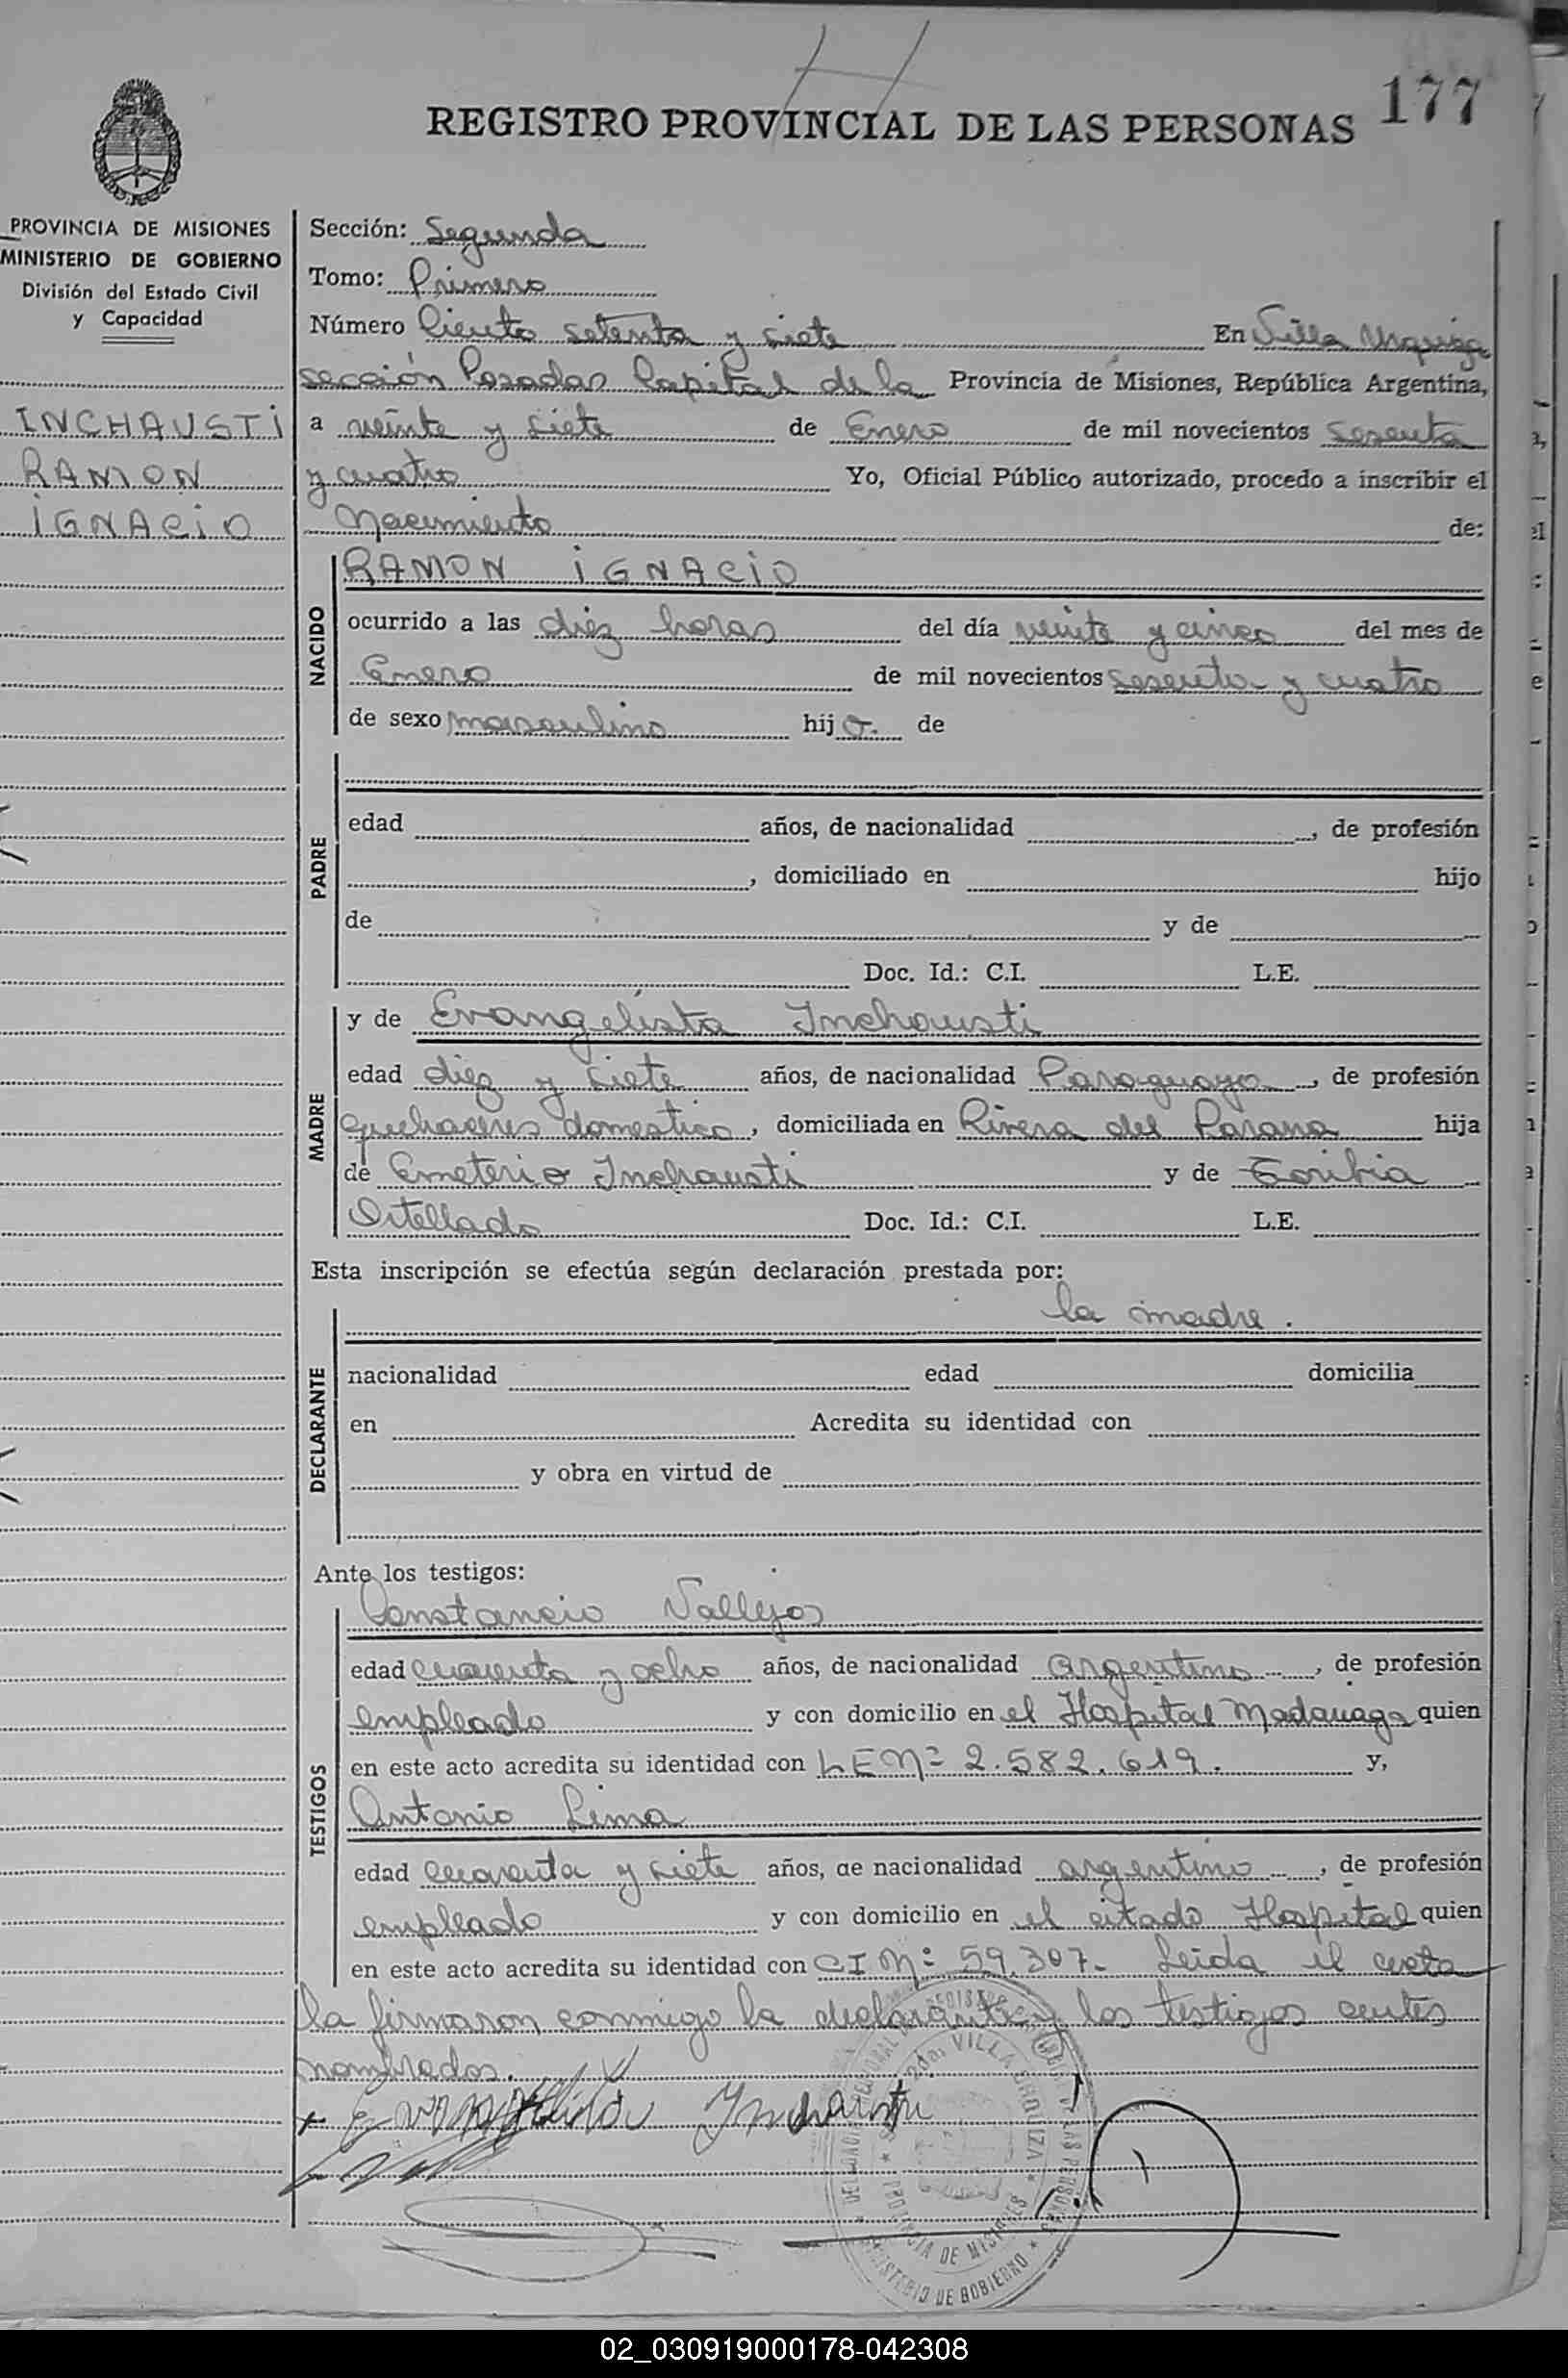 177
REGISTRO PROVINCIAL DE LAS PERSONAS
PROVINCIA DE MISIONES
MINISTERIO DE GOBIERNO
División del Estado Civil
y Capacidad
INCHAUSTI
RAMON
IGNACIO
Sección: Segunda
Tomo: Primero
Número Ciento setenta y siete En Villa Urquiza
sección Posadas Capital de la Provincia de Misiones, República Argentina,
a veinte y siete de Enero de mil novecientos sesenta
y cuatro Yo, Oficial Público autorizado, procedo a inscribir el
Nacimiento de:
NACIDO
RAMON IGNACIO
ocurrido a las diez horas del día veinte y cinco del mes de
Enero de mil novecientos sesenta y cuatro
de sexo masculino hijo. de
PADRE
edad años, de nacionalidad , de profesión
, domiciliado en hijo
de y de
Doc. Id.: C.I. L.E.
MADRE
y de Evangelista Inchausti
edad diez y siete años, de nacionalidad Paraguaya, de profesión
quehaceres domestico, domiciliada en Rivera del Parana hija
de Emeterio Inchausti y de Toribia
Ortellado Doc. Id.: C.I. L.E.
Esta inscripción se efectúa según declaración prestada por:
la madre.
DECLARANTE
nacionalidad edad domicilia
en Acredita su identidad con
y obra en virtud de
Ante los testigos:
TESTIGOS
Constancio Vallejos
edad cuarenta y ocho años, de nacionalidad argentino, de profesión
empleado y con domicilio en el Hospital Madariaga quien
en este acto acredita su identidad con LE Nº 2.582.619. y,
Antonio Lima
edad cuarenta y siete años, de nacionalidad argentino, de profesión
empleado y con domicilio en el citado Hospital quien
en este acto acredita su identidad con CI Nº 59.307- Leida el acta
la firmaron conmigo la declarante y los testigos antes
nombrados.
Evangelista Inchausti
2da. VILLA URQUIZA
PROVINCIA DE MISIONES
MINISTERIO DE GOBIERNO
02_030919000178-042308